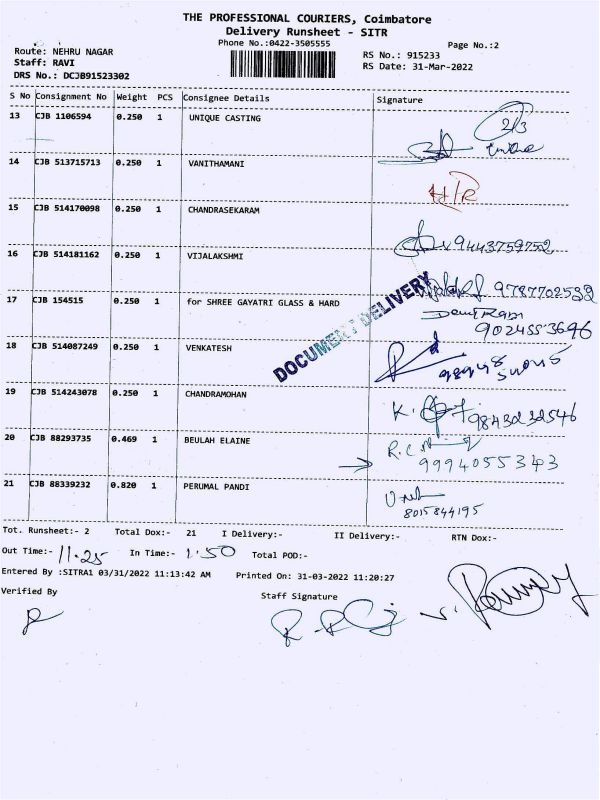 THE PROFESSIONAL COURIERS, Coimbatore
Delivery Runsheet - SITR
Phone No.:0422-3505555
Page No.:2
Route: NEHRU NAGAR
Staff: RAVI
DRS No.: DCJB91523302
RS No.: 915233
RS Date: 31-Mar-2022
S No Consignment No Weight PCS Consignee Details Signature
13 CJB 1106594 0.250 1 UNIQUE CASTING 2/3
14 CJB 513715713 0.250 1 VANITHAMANI H/R
15 CJB 514170098 0.250 1 CHANDRASEKARAM 9443759752
16 CJB 514181162 0.250 1 VIJALAKSHMI 9787702532
17 CJB 154515 0.250 1 for SHREE GAYATRI GLASS & HARD
9024553696
DOCUMENT DELIVERY
18 CJB 514087249 0.250 1 VENKATESH
19 CJB 514243078 0.250 1 CHANDRAMOHAN K. 9843232546
20 CJB 88293735 0.469 1 BEULAH ELAINE R.C
9994055343
21 CJB 88339232 0.820 1 PERUMAL PANDI
8015844195
Tot. Runsheet:- 2 Total Dox:- 21 I Delivery:- II Delivery:- RTN Dox:-
Out Time:- 11.25 In Time:- 1.50 Total POD:-
Entered By :SITRA1 03/31/2022 11:13:42 AM Printed On: 31-03-2022 11:20:27
Verified By Staff Signature